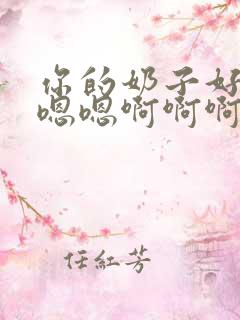 你的奶子好
嗯嗯啊啊啊
任紅芳